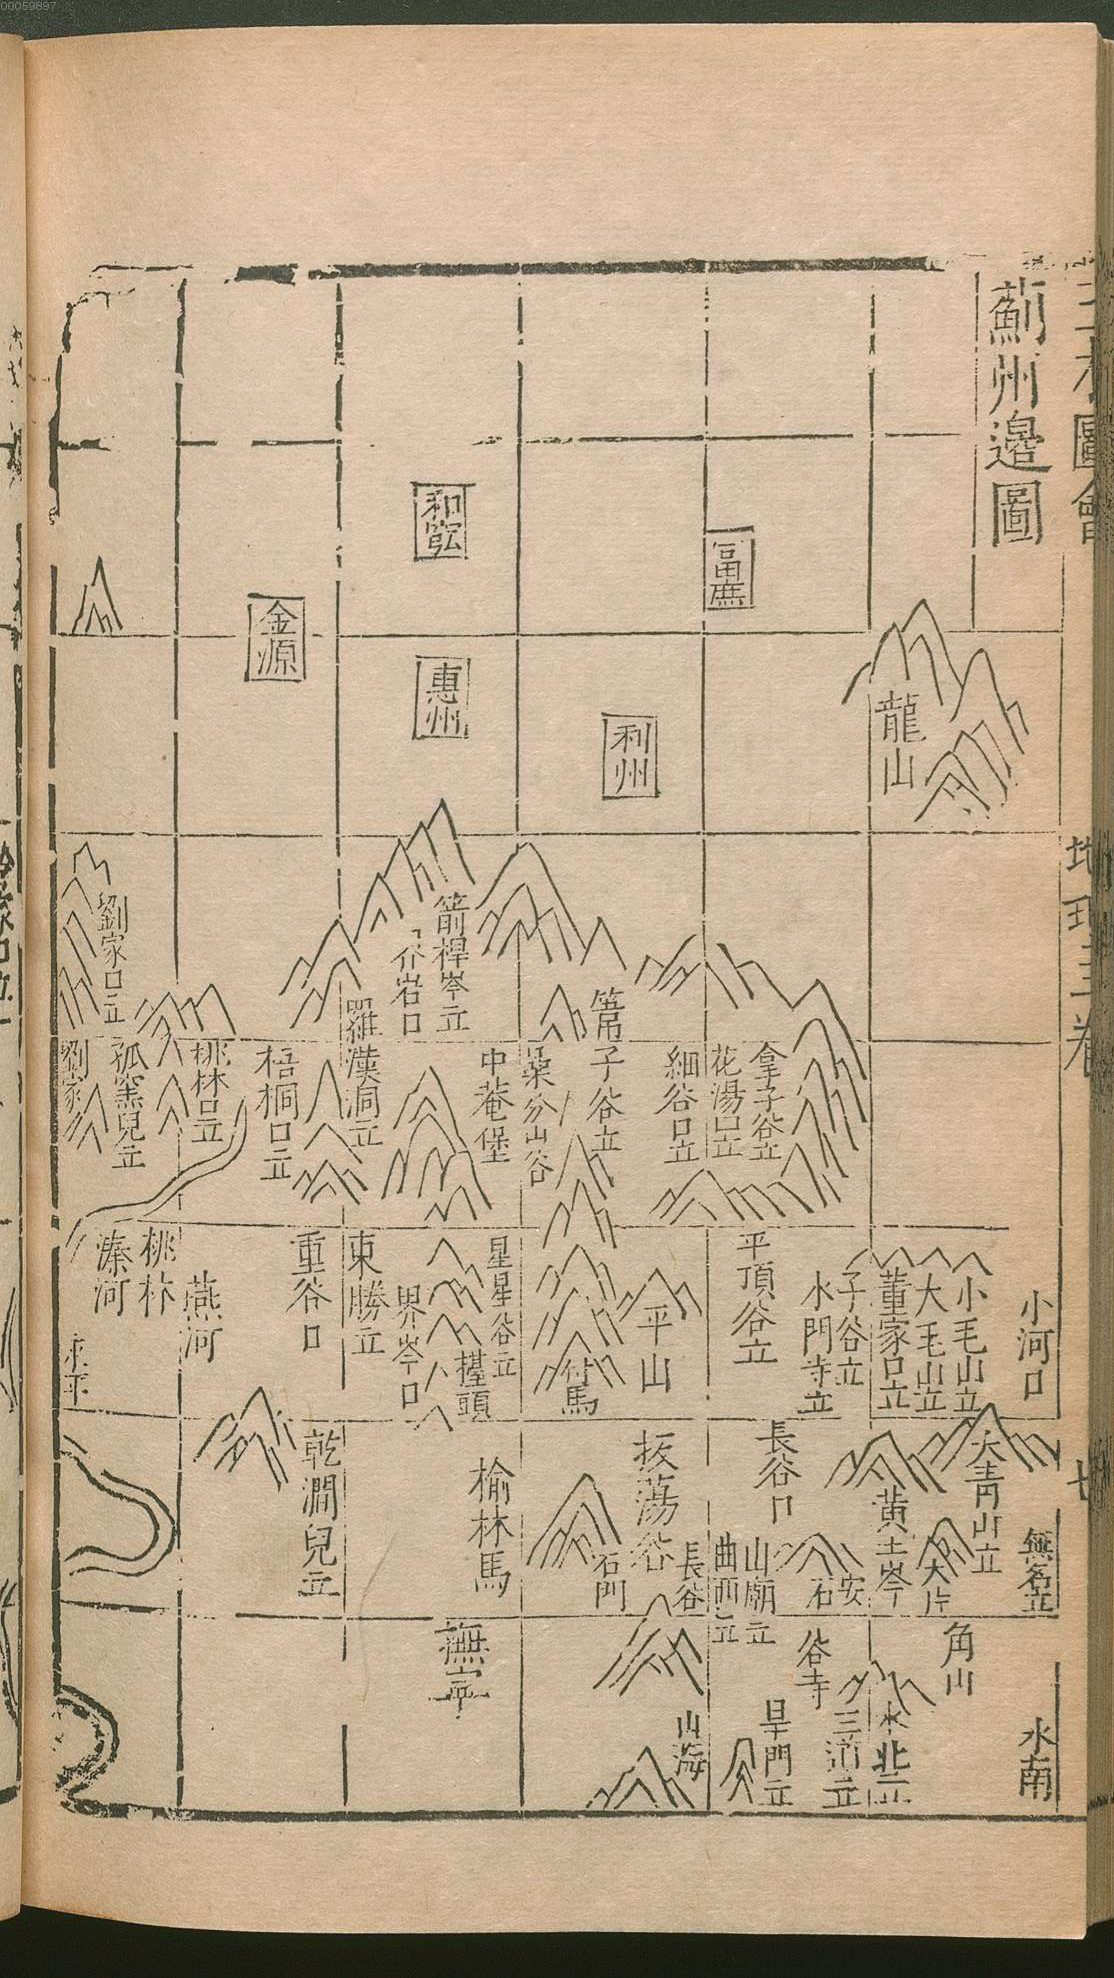 00059897
三才圖會
地理三卷
薊州邊圖
龍山
富庶
利州
和䡌
惠州
金源
小河口
無名立
水南
小毛山立
大毛山立
董家口立
大青山立
黃土岺
大片
角山
子谷立
水門寺立
平頂谷立
長谷口
安
石
山廟立
曲西立
谷寺
三道立
水北立
旱門立
拿子谷立
花湯口立
細谷口立
平山
㧞蕩谷
長谷
石門
山海
箭桿岺立
岩口
子谷立
中菴堡
星星谷立
擡頭
界岺口
付馬
榆林馬
撫寧
羅漢洞立
東勝立
重谷口
乾澗兒立
梧桐口立
桃林口立
孤窑兒立
劉家口立
劉家
桃林
燕河
漆河
永平